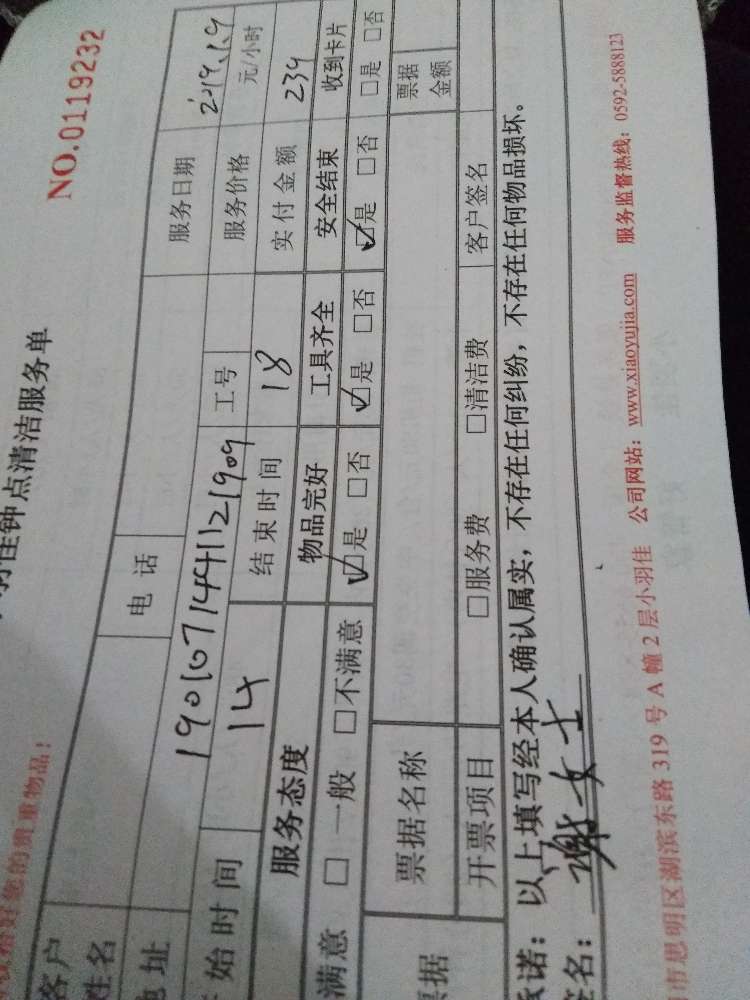 NO.0119232
羽佳钟点清洁服务单
好您的贵重物品!
客户姓名 电话 服务日期 2019.1.9
地址 190107144121909 工号 服务价格 元/小时
始时间 14 结束时间 18 实付金额 239
服务态度 物品完好 工具齐全 安全结束 收到卡片
满意 □一般 □不满意 ☑是 □否 ☑是 □否 ☑是 □否 □是 □否
票据名称 票据金额
据 开票项目 □服务费 □清洁费 客户签名
承诺:以上填写经本人确认属实,不存在任何纠纷,不存在任何物品损坏。
签名:谢女士
市思明区湖滨东路319号A幢2层小羽佳 公司网站:www.xiaoyujia.com 服务监督热线:0592-5888123